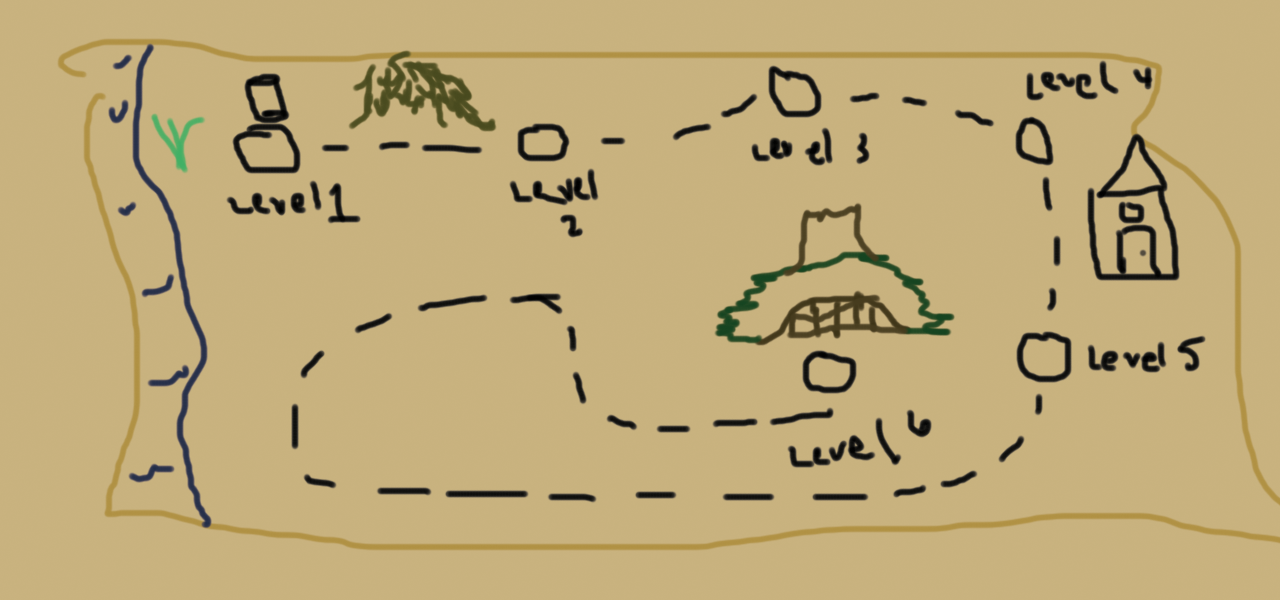 Level 1
Level
2
Level 3
Level 4
Level 5
Level 6